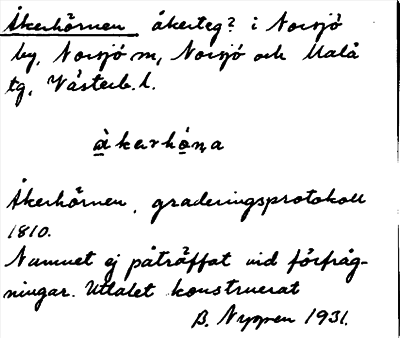 Åkerhörnen åkerteg? i Norsjö
by, Norsjö sn, Norsjö och Malå
tg, Västerb. l.
åkerhöṇa
Åkerhörnen, graderingsprotokoll
1810.
Namnet ej påträffat vid förfråg-
ningar. Uttalet konstruerat
B. Nyppen 1931.